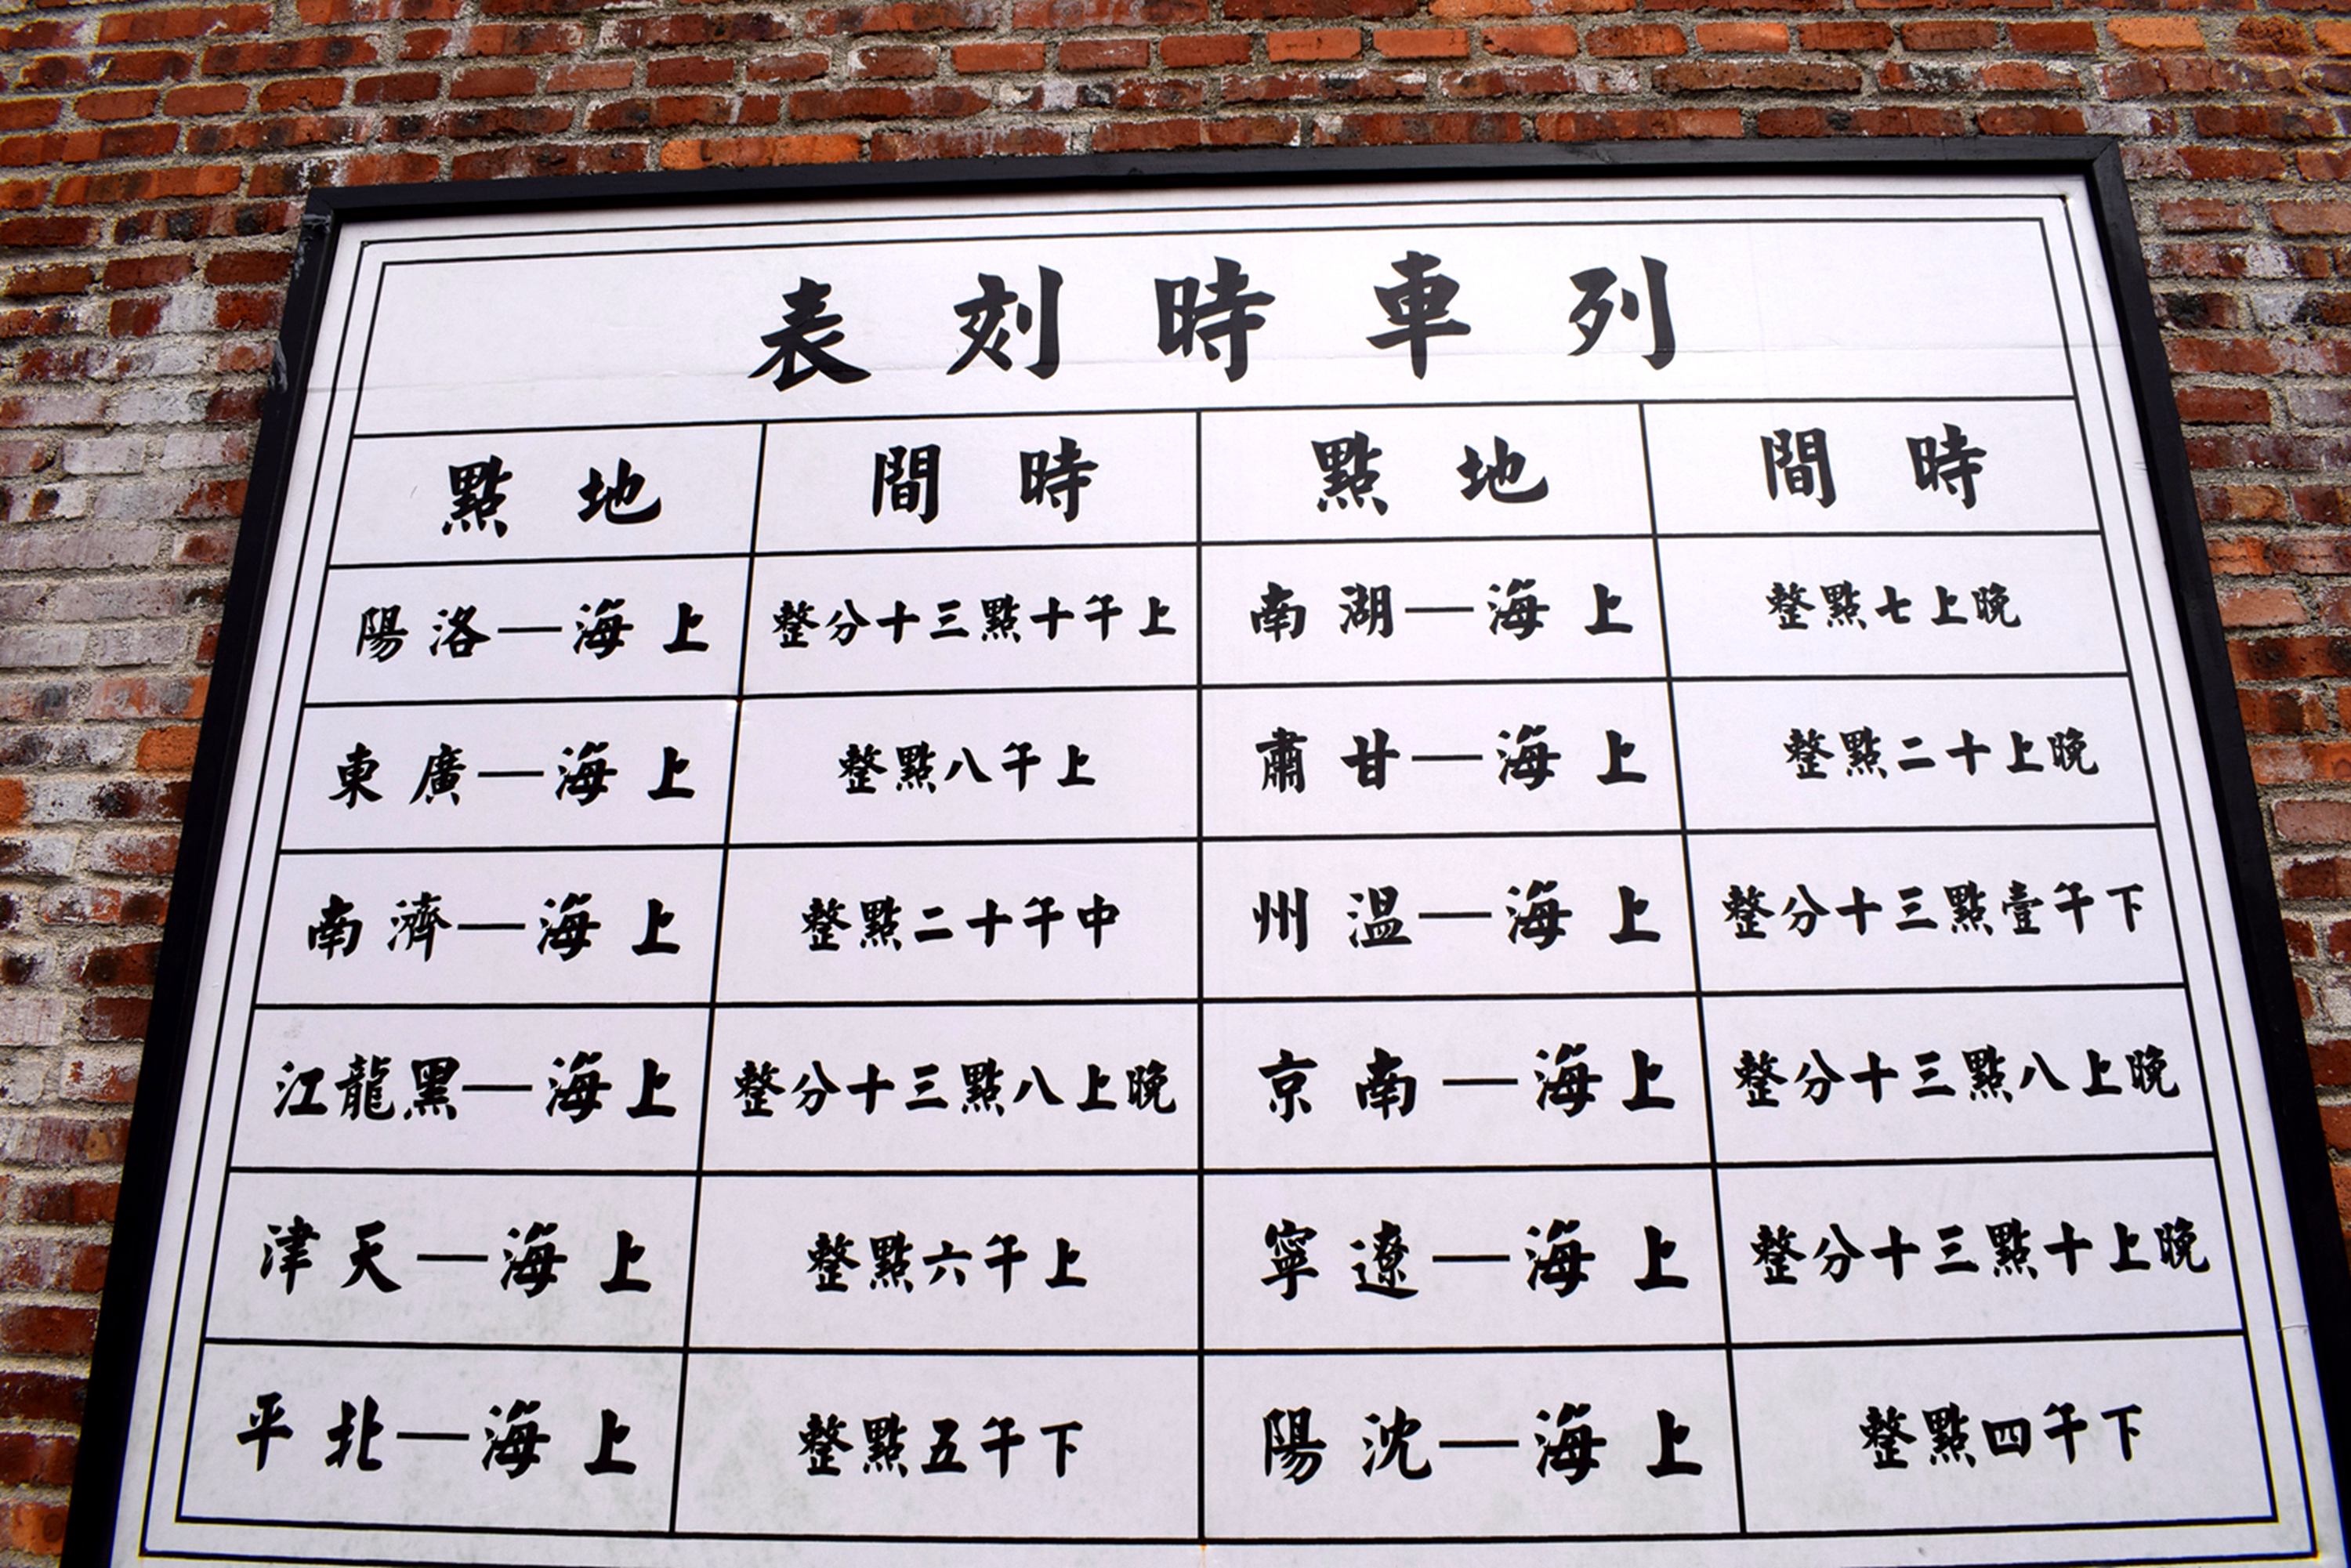 列車時刻表
地點 時間 地點 時間
上海—洛陽 上午十點三十分整 上海—湖南 晚上七點整
上海—廣東 上午八點整 上海—甘肅 晚上十二點整
上海—濟南 中午十二點整 上海—温州 下午壹點三十分整
上海—黑龍江 晚上八點三十分整 上海—南京 晚上八點三十分整
上海—天津 上午六點整 上海—遼寧 晚上十點三十分整
上海—北平 下午五點整 上海—沈陽 下午四點整